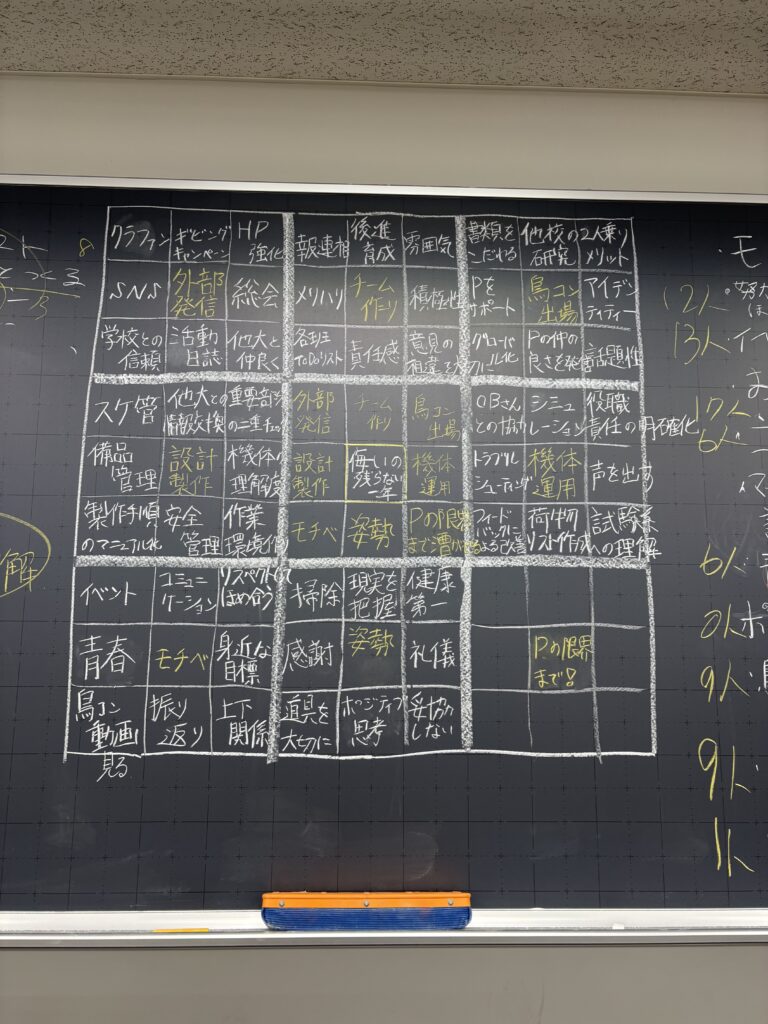 クラファン ギビング キャンペーン HP 強化 報連相 後進 育成 雰囲気 書類を こだわる 他校の 研究 2人乗り メリット
SNS 外部 発信 総会 メリハリ チーム 作り 積極性 Pを サポート 鳥コン 出場 アイデン ティティー
学校との 信頼 活動 日誌 他大と 仲良く 各班 ToDoリスト 責任感 意見の 相違を大切に グローバ ル化 Pの仲の 良さを発信 話題性
スケ管 他大との 情報交換 重要部分 の二重チェック 外部 発信 チーム 作り 鳥コン 出場 OBさん との協力 シミュ レーション 役職 責任の明確化
備品 管理 設計 製作 機体の 理解度 設計 製作 悔いの 残らない 一年 機体 運用 トラブル シューティング 機体 運用 声を出す
製作手順 のマニュアル化 安全 管理 作業 環境 モチベ 姿勢 Pの限界 まで漕がせる フィード バックに よる改善 荷物 リスト作成 試験系 への理解
イベント コミュニ ケーション リスペクト ほめ合う 掃除 現実を 把握 健康 第一
青春 モチベ 身近な 目標 感謝 姿勢 礼儀 Pの限界 まで!
鳥コン 動画 見る 振り 返り 上下 関係 道具を 大切に ポジティブ 思考 妥協 しない
8
解
モ
12人
13人
17人
6人
6人
0人
9人
9人
1人